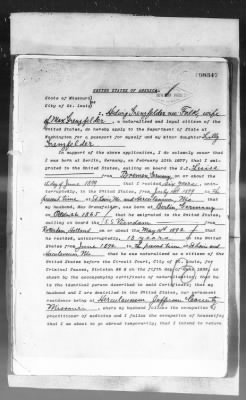 UNITED STATES OF AMERICA.
State of Missouri,
City of St. Louis.
I, Hedwig Grenzfelder nee Falk, wife
of Max Grenzfelder, a naturalized and legal citizen of the
United States, do hereby apply to the Department of State at
Washington for a passport for myself and my minor daughter
Grenzfelder
In support of the above application, I do solemnly swear that
I was born at Berlin, Germany, on February 10th, 1877; that I emi-
grated to the United States, sailing on board the S.S.
from Bremen Germany on or about the
day of June 1899 that I resided six years, unin-
terruptedly, in the United States, from July 1899 to the
present time at St. Louis Mo. and Herculaneum, Mo. that
my husband, Max Grenzfelder, was born at Berlin, Germany
on 1865 that he emigrated to the United States,
sailing on board the S.S. from
Rotterdam, Holland on or about the May 1890 that
he resided, uninterruptedly, 15 years in the United
States from June 1890 to the present time at St. Louis and
Herculaneum Mo. that he was naturalized as a citizen of the
United States before the Circuit Court, City of St. Louis, for
Criminal Causes, Division
shown by the accompanying certificate of naturalization; that he
is the identical person described in said Certificate; that my
husband and I are domiciled in the United States, our permanent
residence being at Herculaneum Jefferson County
Missouri, where my husband follows the occupation of
practitioner of medicine and I follow the occupation of housewife;
that I am about to go abroad temporarily; that I intend to return